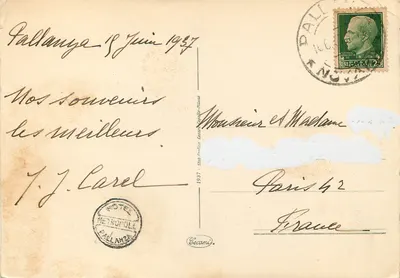 Pallanza 15 Juin 1937
Nos souvenirs
les meilleurs
J. J. Carel
HOTEL
METROPOLE
PALLANZA
PALL
NOV
Monsieur et Madame
Paris 42
France